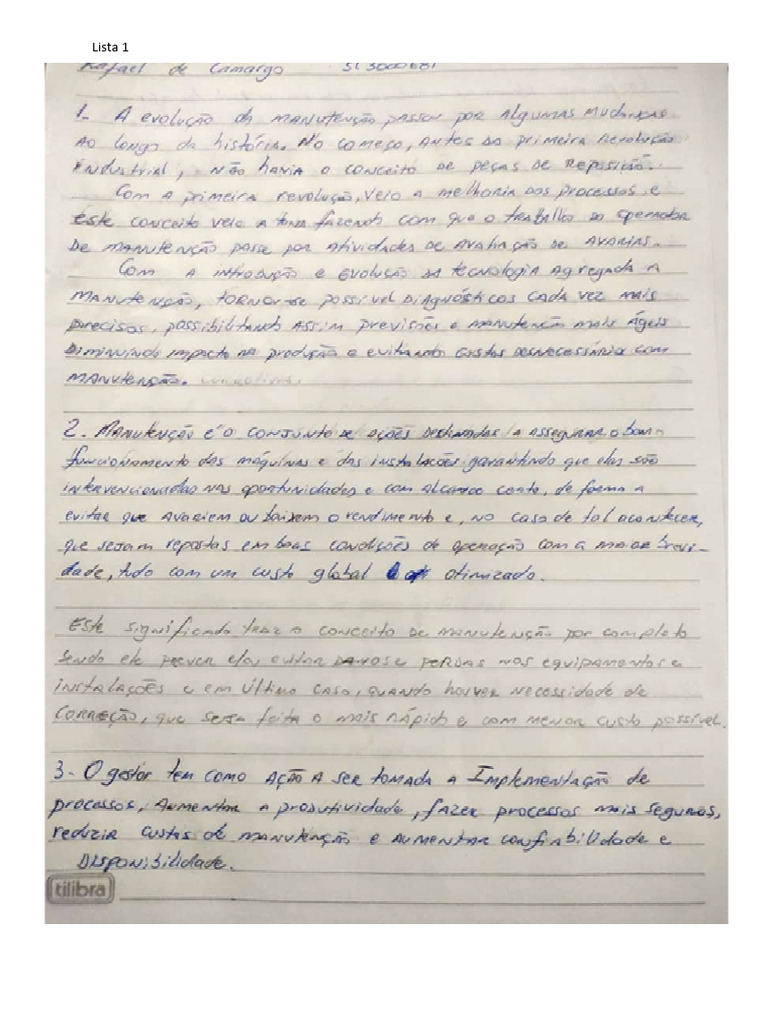 Lista 1
Rafael de Camargo SC3000681
1- A evolução da manutenção passou por algumas mudanças
ao longo da história. No começo, antes da primeira Revolução
Industrial, não havia o conceito de peças de reposição.
Com a primeira revolução, veio a melhoria dos processos, e
este conceito veio a tona fazendo com que o trabalho do operador
de manutenção passe por atividades de avaliação de avarias.
Com a introdução e evolução da tecnologia agregada a
manutenção, tornou-se possível diagnósticos cada vez mais
precisos, possibilitando assim previsões e manutenção mais ágeis
diminuindo impacto na produção e evitando gastos desnecessários com
manutenção.
2. Manutenção é o conjunto de ações destinadas a assegurar o bom
funcionamento das máquinas e das instalações garantindo que elas são
intervencionadas nas oportunidades e com alcance certo, de forma a
evitar que avariem ou baixem o rendimento e, no caso de tal acontecer,
que sejam repostas em boas condições de operação com a maior brevi-
dade, tudo com um custo global otimizado.
Este significado traz o conceito de manutenção por completo
sendo ele prever e/ou evitar danos e perdas nos equipamentos e
instalações e em último caso, quando houver necessidade de
correção, que seja feita o mais rápido e com menor custo possível.
3- O gestor tem como ação a ser tomada a Implementação de
processos, aumentar a produtividade, fazer processos mais seguros,
reduzir custos de manutenção e aumentar confiabilidade e
disponibilidade.
tilibra